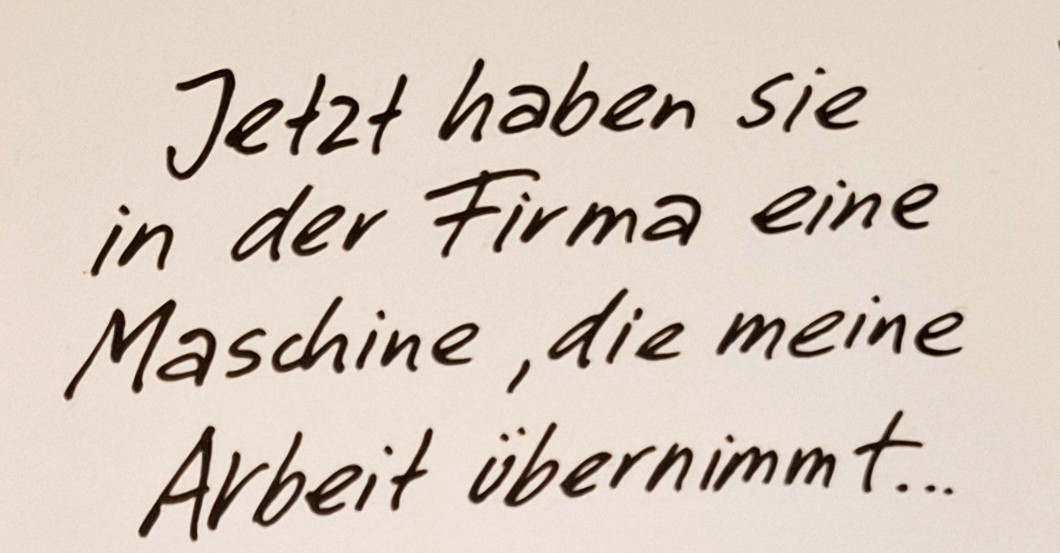 Jetzt haben sie
in der Firma eine
Maschine, die meine
Arbeit übernimmt...